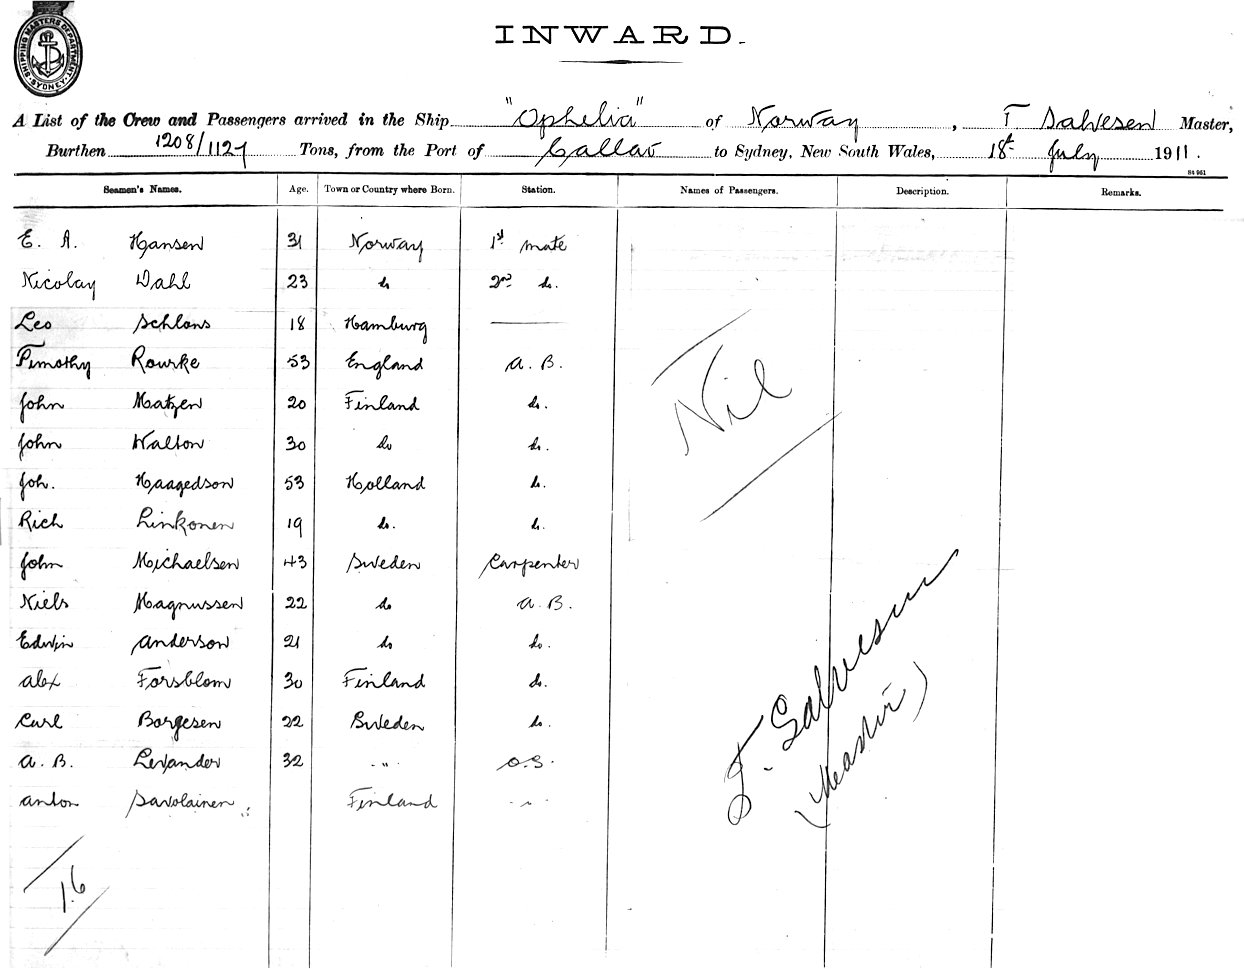 SHIPPING MASTERS DEPARTMENT SYDNEY
INWARD.
A List of the Crew and Passengers arrived in the Ship "Ophelia" of Norway, T Salvesen Master,
Burthen 1208/1127 Tons, from the Port of Callao to Sydney, New South Wales, 18th July 1911.
84 961
Seamen's Names. Age. Town or Country where Born. Station. Names of Passengers. Description. Remarks.
E. A. Hansen 31 Norway 1st mate
Nicolay Dahl 23 do 2nd do.
Leo Schlons 18 Hamburg
Timothy Rourke 53 England A. B.
John Matzen 20 Finland do.
John Walton 30 do do.
Joh. Haagedson 53 Holland do.
Rich Linkonen 19 do. do.
John Michaelsen 43 Sweden Carpenter
Niels Magnussen 22 do A. B.
Edwin Anderson 21 do do.
Alex Forsblom 30 Finland do.
Carl Borgesen 22 Sweden do.
A. B. Levander 32 " O.S.
Anton Savolainen Finland "
Nil
T. Salvesen
(Master)
16